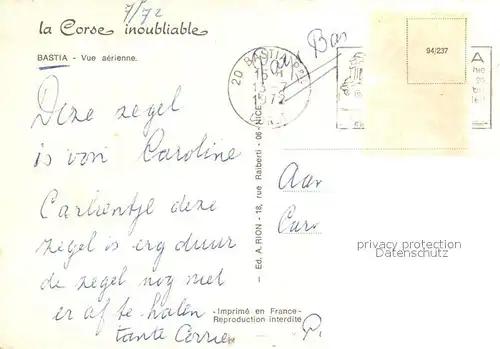 7/72
la Corse inoubliable
BASTIA - Vue aérienne.
94/237
20 BASTIA
1972
Deze zegel
is von Caroline
Aan
Carlientje deze
zegel is erg duur
de zegel nog niet
er af te halen
tante Corrie
privacy protection
Datenschutz
- Imprimé en France -
Reproduction interdite
— Ed. A. RION - 18, rue Raiberti - 06-NICE